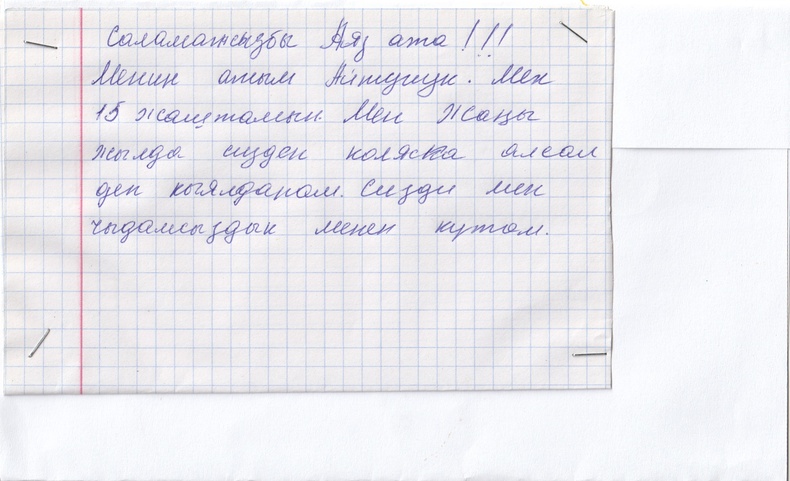 Саламатсызбы Аяз ата!!!
Менин атым Айтунук. Мен
15 жаштамын. Мен Жаңы
жылда сизден коляска алсам
деп кыялданам. Сизди мен
чыдамсыздык менен кутом.